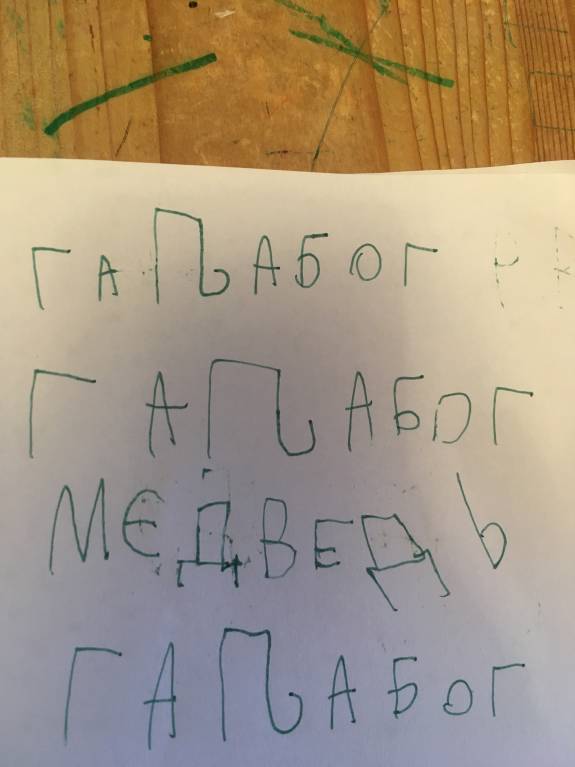 ГАПАБОГ
ГАПАБОГ
МЕДВЕДЬ
ГАПАБОГ